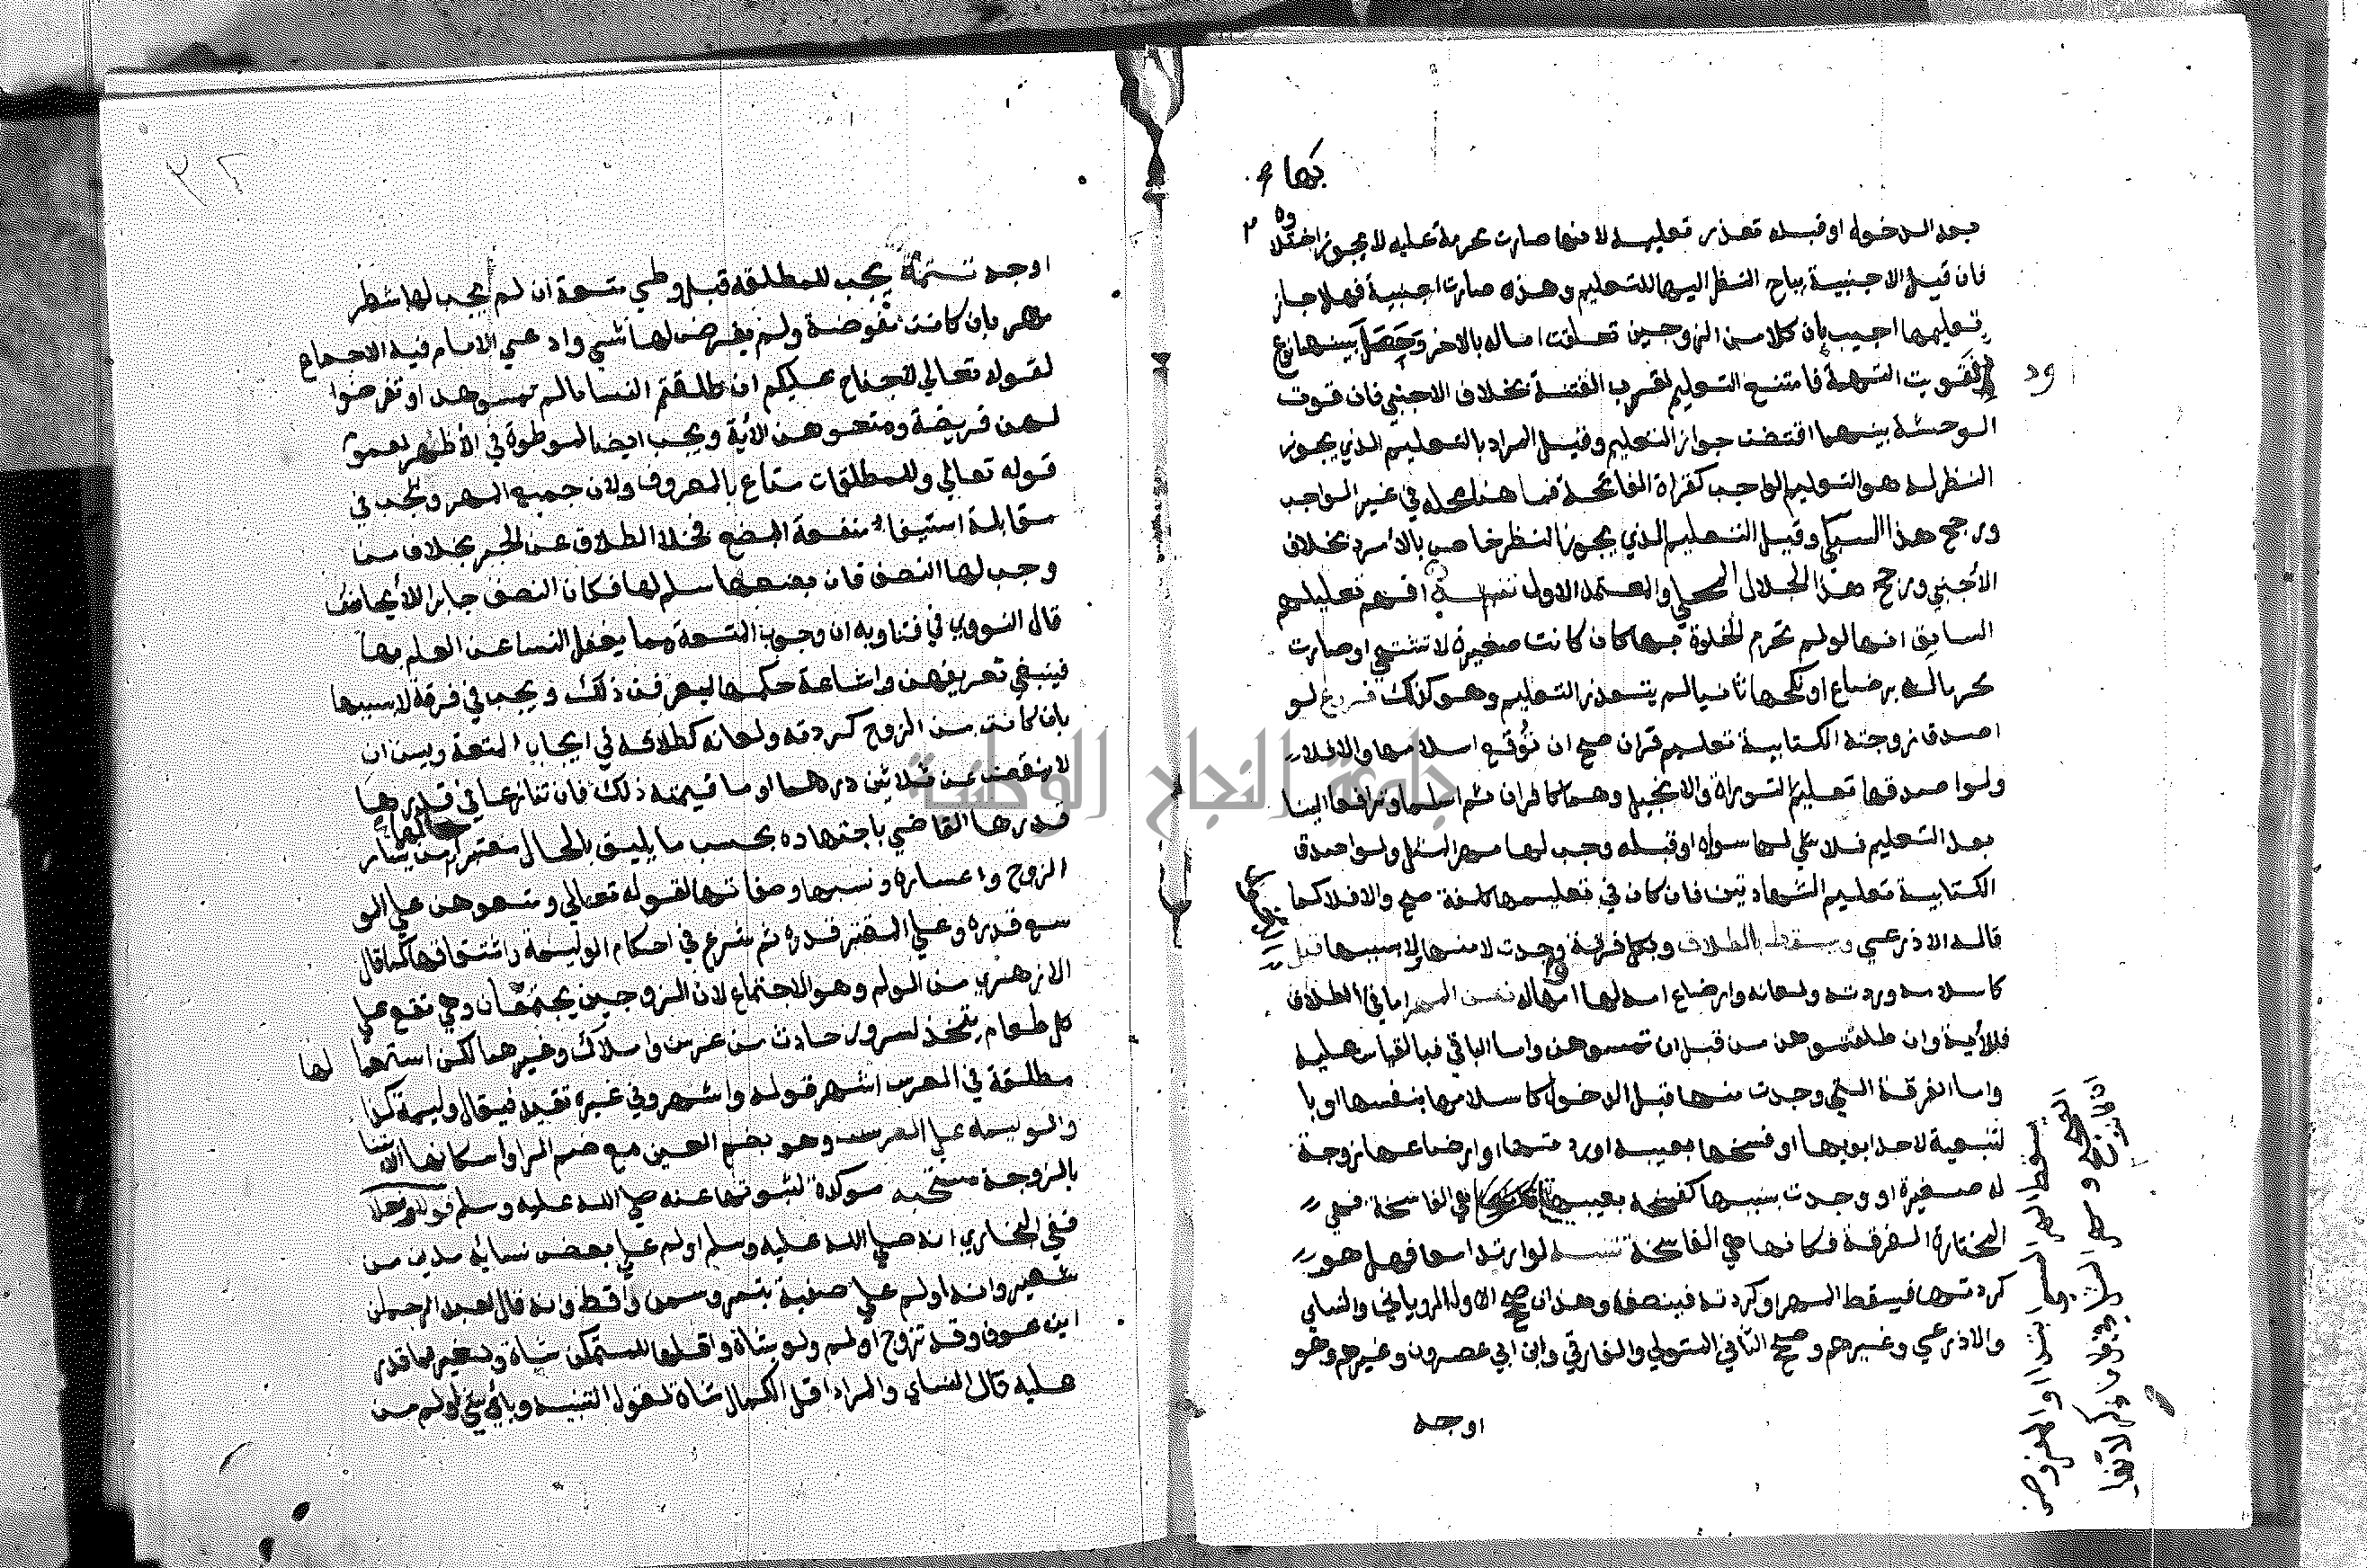 بها
بعد الدخول او قبله تعذر تعليمه لانها صارت محرمة عليه لا يجوز اختلاوه
فان قيل الاجنبية يباح النظر اليها للتعليم وهذه صارت اجنبية فهلا جاز
تعليمها اجيب بان كلا من الزوجين تعلقت اماله بالاخر وحصل بينهما نوع
ود
فقويت التهمة فامتنع التعليم لقرب الفتنة بخلاف الاجنبي فان قوت
الوحشة بينهما اقتضت جواز التعليم وقيل المراد بالتعليم الذي يجوز
النظر له هو التعليم الواجب كقراة الفاتحة فما هنا محله في غير الواجب
ورجح هذا السبكي وقيل التعليم الذي يجوز النظر خاص بالأمرد بخلاف
الأجنبي ورجح هذا الجلال المحلي والمعتمد الاول تنبيه افهم تعليلهم
السابق انها لو لم تحرم الخلوة بها كان كانت صغيرة لا تشتهي او صارت
محرما له برضاع او نكحها ثانيا لم يتعذر التعليم وهو كذلك فروع لو
اصدق زوجته الكتابية تعليم قران صح ان توقع اسلامها والا فلا
ولو اصدقها تعليم التوراة والانجيل وهما كافران ثم اسلما وترافعا الينا
بعد التعليم فلا شي لها سواه او قبله وجب لها مهر المثل ولو اصدق
الكتابية تعليم الشهادتين فان كان في تعليمها كلفة صح والا فلا كما
قاله الاذرعي ويسقط بالطلاق وبكل فرقة وجدت لا منها ولا بسببها قبل
كاسلامه وردته ولعانه وارضاع امه لها او امها له نصف المهر اما في الطلاق
فللأية وان طلقتموهن من قبل ان تمسوهن واما الباقي فبالقياس عليه
واما الفرقة التي وجدت منها قبل الدخول كاسلامها بنفسها او با
لتبعية لاحد ابويها او فسخها بعيبه او ردتها او ارضاعها زوجة
له صغيرة او وجدت بسببها كفسخه بعيبها
المختارة للفرقة فكانها هي الفاسخة تنبيه لو ارتدا معا فهل هو
كردتها فيسقط المهر او كردته فينصفه وجهان صحح الاول الروياني والنشاي
والاذرعي وغيرهم وصحح الثاني المتولي والفارقي وابن ابي عصرون وغيرهم وهو
اوجه
اوجه تتمة يجب للمطلقة قبل وطي متعة ان لم يجب لها شطر
مهر بان كانت مفوضة ولم يفرض لها شي وادعي الامام فيه الاجماع
لقوله تعالي لا جناح عليكم ان طلقتم النسا مالم تمسوهن او تفرضوا
لهن فريضة ومتعوهن الأية ويجب ايضا لموطوة في الأظهر لعموم
قوله تعالي وللمطلقات متاع بالمعروف ولان جميع المهر وجب في
مقابلة استيفاء منفعة البضع فخلا الطلاق عن الجبر بخلاف من
وجب لها النصف فان بضعها سلم لها فكان النصف جابرا للأيحاش
قال النووي في فتاويه ان وجوب المتعة مما يغفل النسا عن العلم بها
فينبغي تعريفهن واشاعة حكمها ليعرفن ذلك ويجب في فرقة لا بسببها
بان كانت من الزوج كردته ولعانه كطلاقه في ايجاب المتعة ويسن ان
لا ينقص عن ثلاثين درهما او ما قيمته ذلك فان تنازعا في قدرها
قدرها القاضي باجتهاده بحسب ما يليق بالحال معتبرا حالهما من يسار
الزوج واعساره ونسبها وصفاتها لقوله تعالي ومتعوهن علي المو
سع قدره وعلي المقتر قدره ثم شرع في احكام الوليمة واشتقاقها كما قال
الازهري من الولم وهو الاجتماع لان الزوجين يجتمعان وهي تقع علي
كل طعام يتخذ لسرور حادث من عرس واملاك وغيرهما لكن استعمالها
مطلقة في العرس اشهر قوله واشهر وفي غيره تقيد فيقال وليمة كذا
والوليمة علي العرس وهو بضم العين مع ضم الرا واسكانها الابتنا
بالزوجة مستحبه موكدة لثبوتها عنه صلي الله عليه وسلم قولا وفعلا
ففي البخاري انه صلي الله عليه وسلم اولم علي بعض نسائه بمدين من
شعير وانه اولم علي صفية بتمر وسمن واقط وانه قال لعبد الرحمان
ابن عوف وقد تزوج اولم ولو بشاة واقلها للمتمكن شاة ولغيره ما قدر
عليه قال النشاي والمراد اقل الكمال شاة لقول التنبيه وباي شي اولم من
جامعة النجاح الوطنية